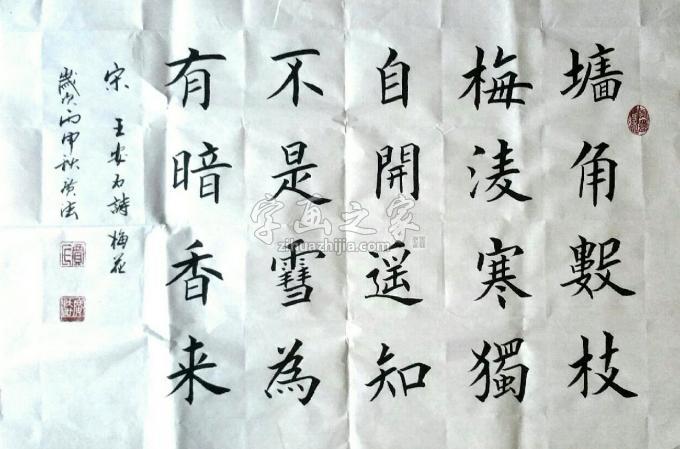 墻角數枝
梅淩寒獨
自開遥知
不是雪為
有暗香来
宋 王安石詩 梅花
歲次丙申秋 黄法
字画之家
zihuazhijia.com